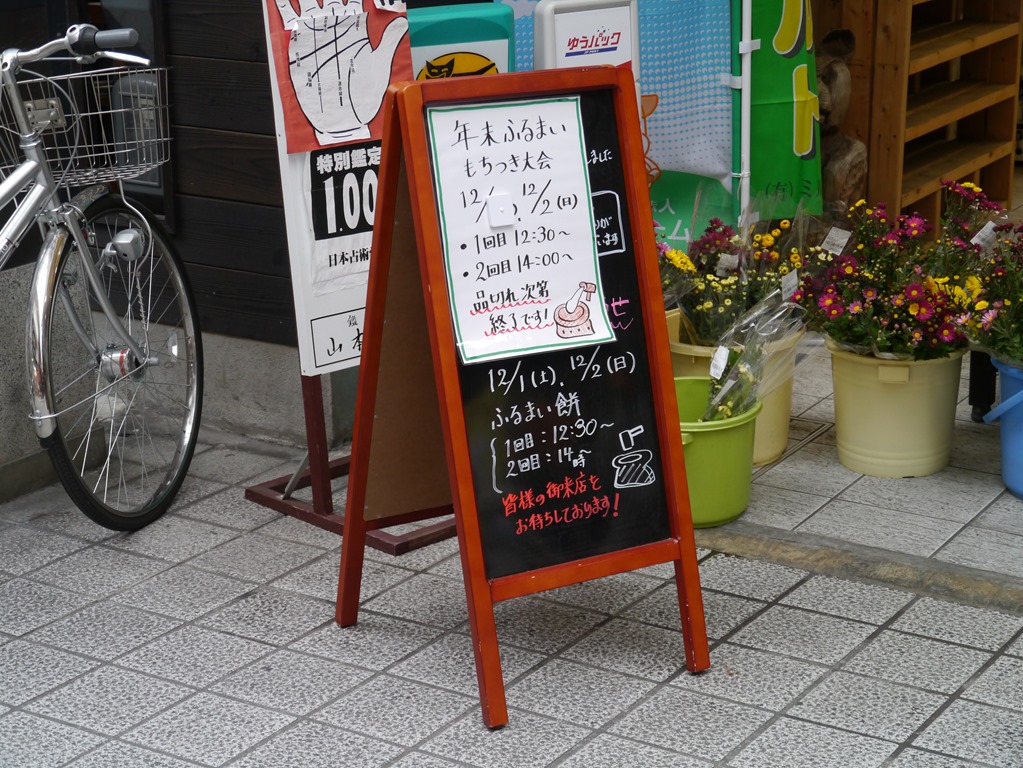 年末ふるまい
もちつき大会
12/1、12/2(日)
・1回目 12:30～
・2回目 14:00～
品切れ次第
終了です!
12/1(土)、12/2(日)
ふるまい餅
1回目:12:30～
2回目:14時～
皆様の御来店を
お待ちしております!
ました
が
います
せ
特別鑑定
1.00
日本占術
鑑
山本
ゆうパック
(有)ミ
人
ム